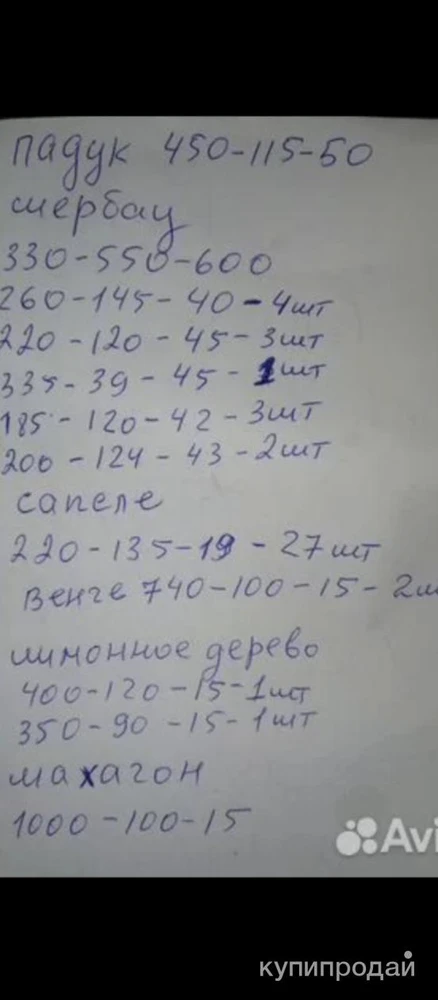 падук 450-115-50
мербау
330-550-600
260-145-40-4шт
220-120-45-3шт
335-39-45-1шт
185-120-42-3шт
200-124-43-2шт
сапеле
220-135-19-27шт
Венге 740-100-15-2ш
лимонное дерево
400-120-15-1шт
350-90-15-1шт
махагон
1000-100-15
Avi
купипродай